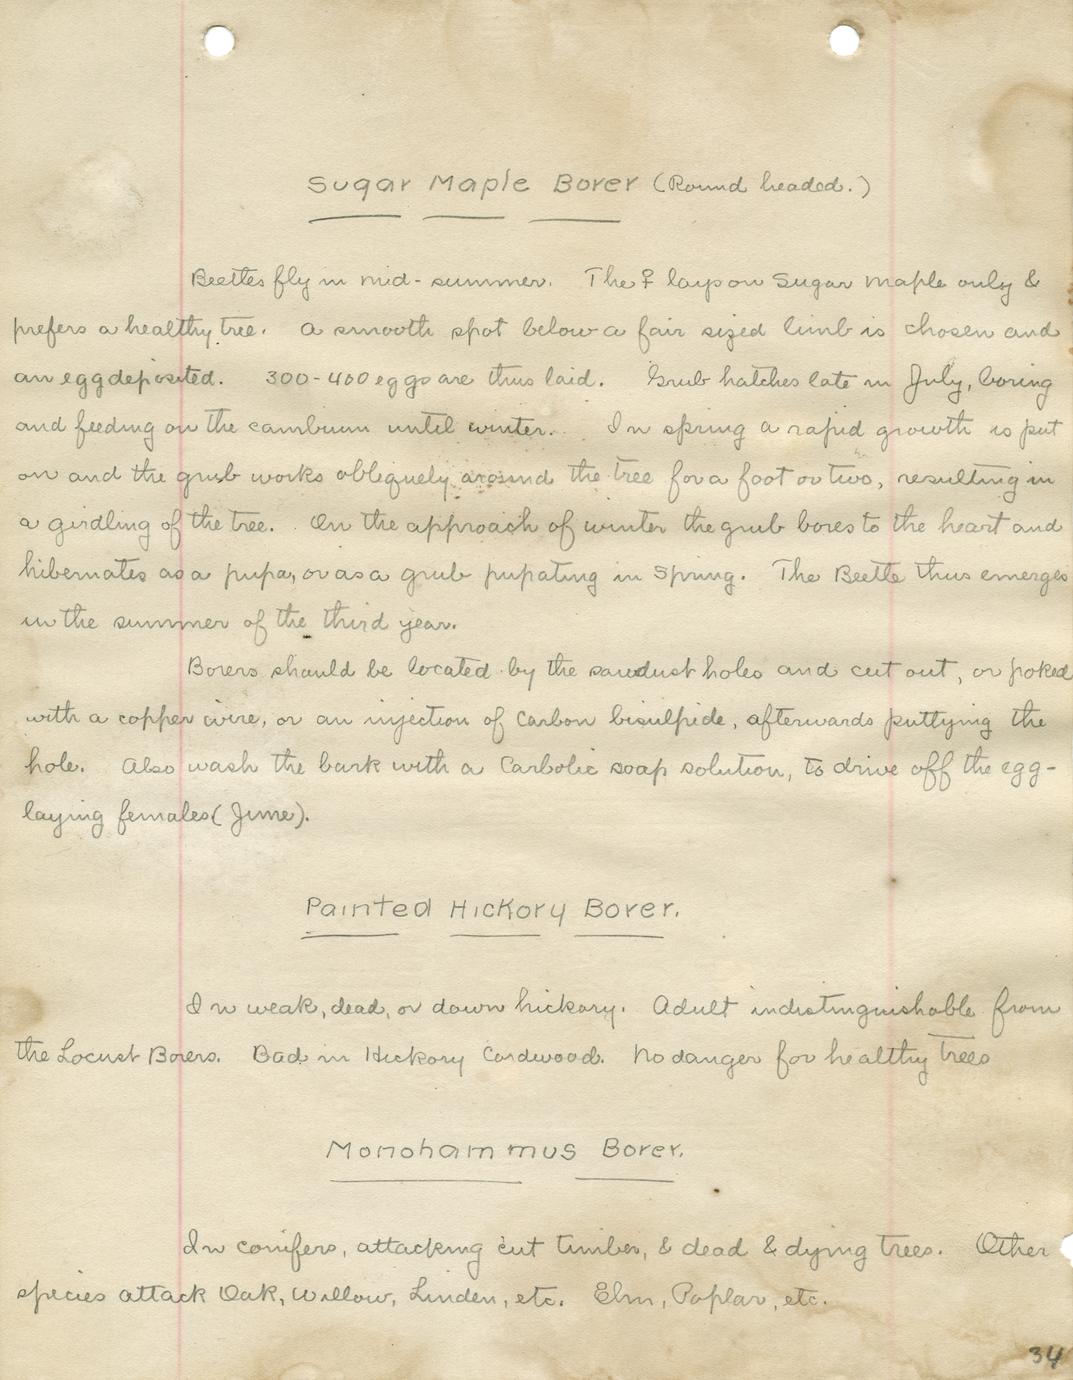 Sugar Maple Borer (Round headed.)
Beetles fly in mid-summer. The ♀ lays on Sugar maple only &
prefers a healthy tree. A smooth spot below a fair sized limb is chosen and
an egg deposited. 300-400 eggs are thus laid. Grub hatches late in July, boring
and feeding on the cambium until winter. In spring a rapid growth is put
on and the grub works obliquely around the tree for a foot or two, resulting in
a girdling of the tree. On the approach of winter the grub bores to the heart and
hibernates as a pupa, or as a grub pupating in Spring. The Beetle thus emerges
in the summer of the third year.
Borers should be located by the sawdust holes and cut out, or poked
with a copper wire, or an injection of Carbon bisulpide, afterwards puttying the
hole. Also wash the bark with a Carbolic soap solution, to drive off the egg-
laying females (June).
Painted Hickory Borer.
In weak, dead, or down hickory. Adult indistinguishable from
the Locust Borers. Bad in Hickory Cordwood. No danger for healthy trees
Monohammus Borer.
In conifers, attacking cut timber, & dead & dying trees. Other
species attack Oak, Willow, Linden, etc. Elm, Poplar, etc.
34